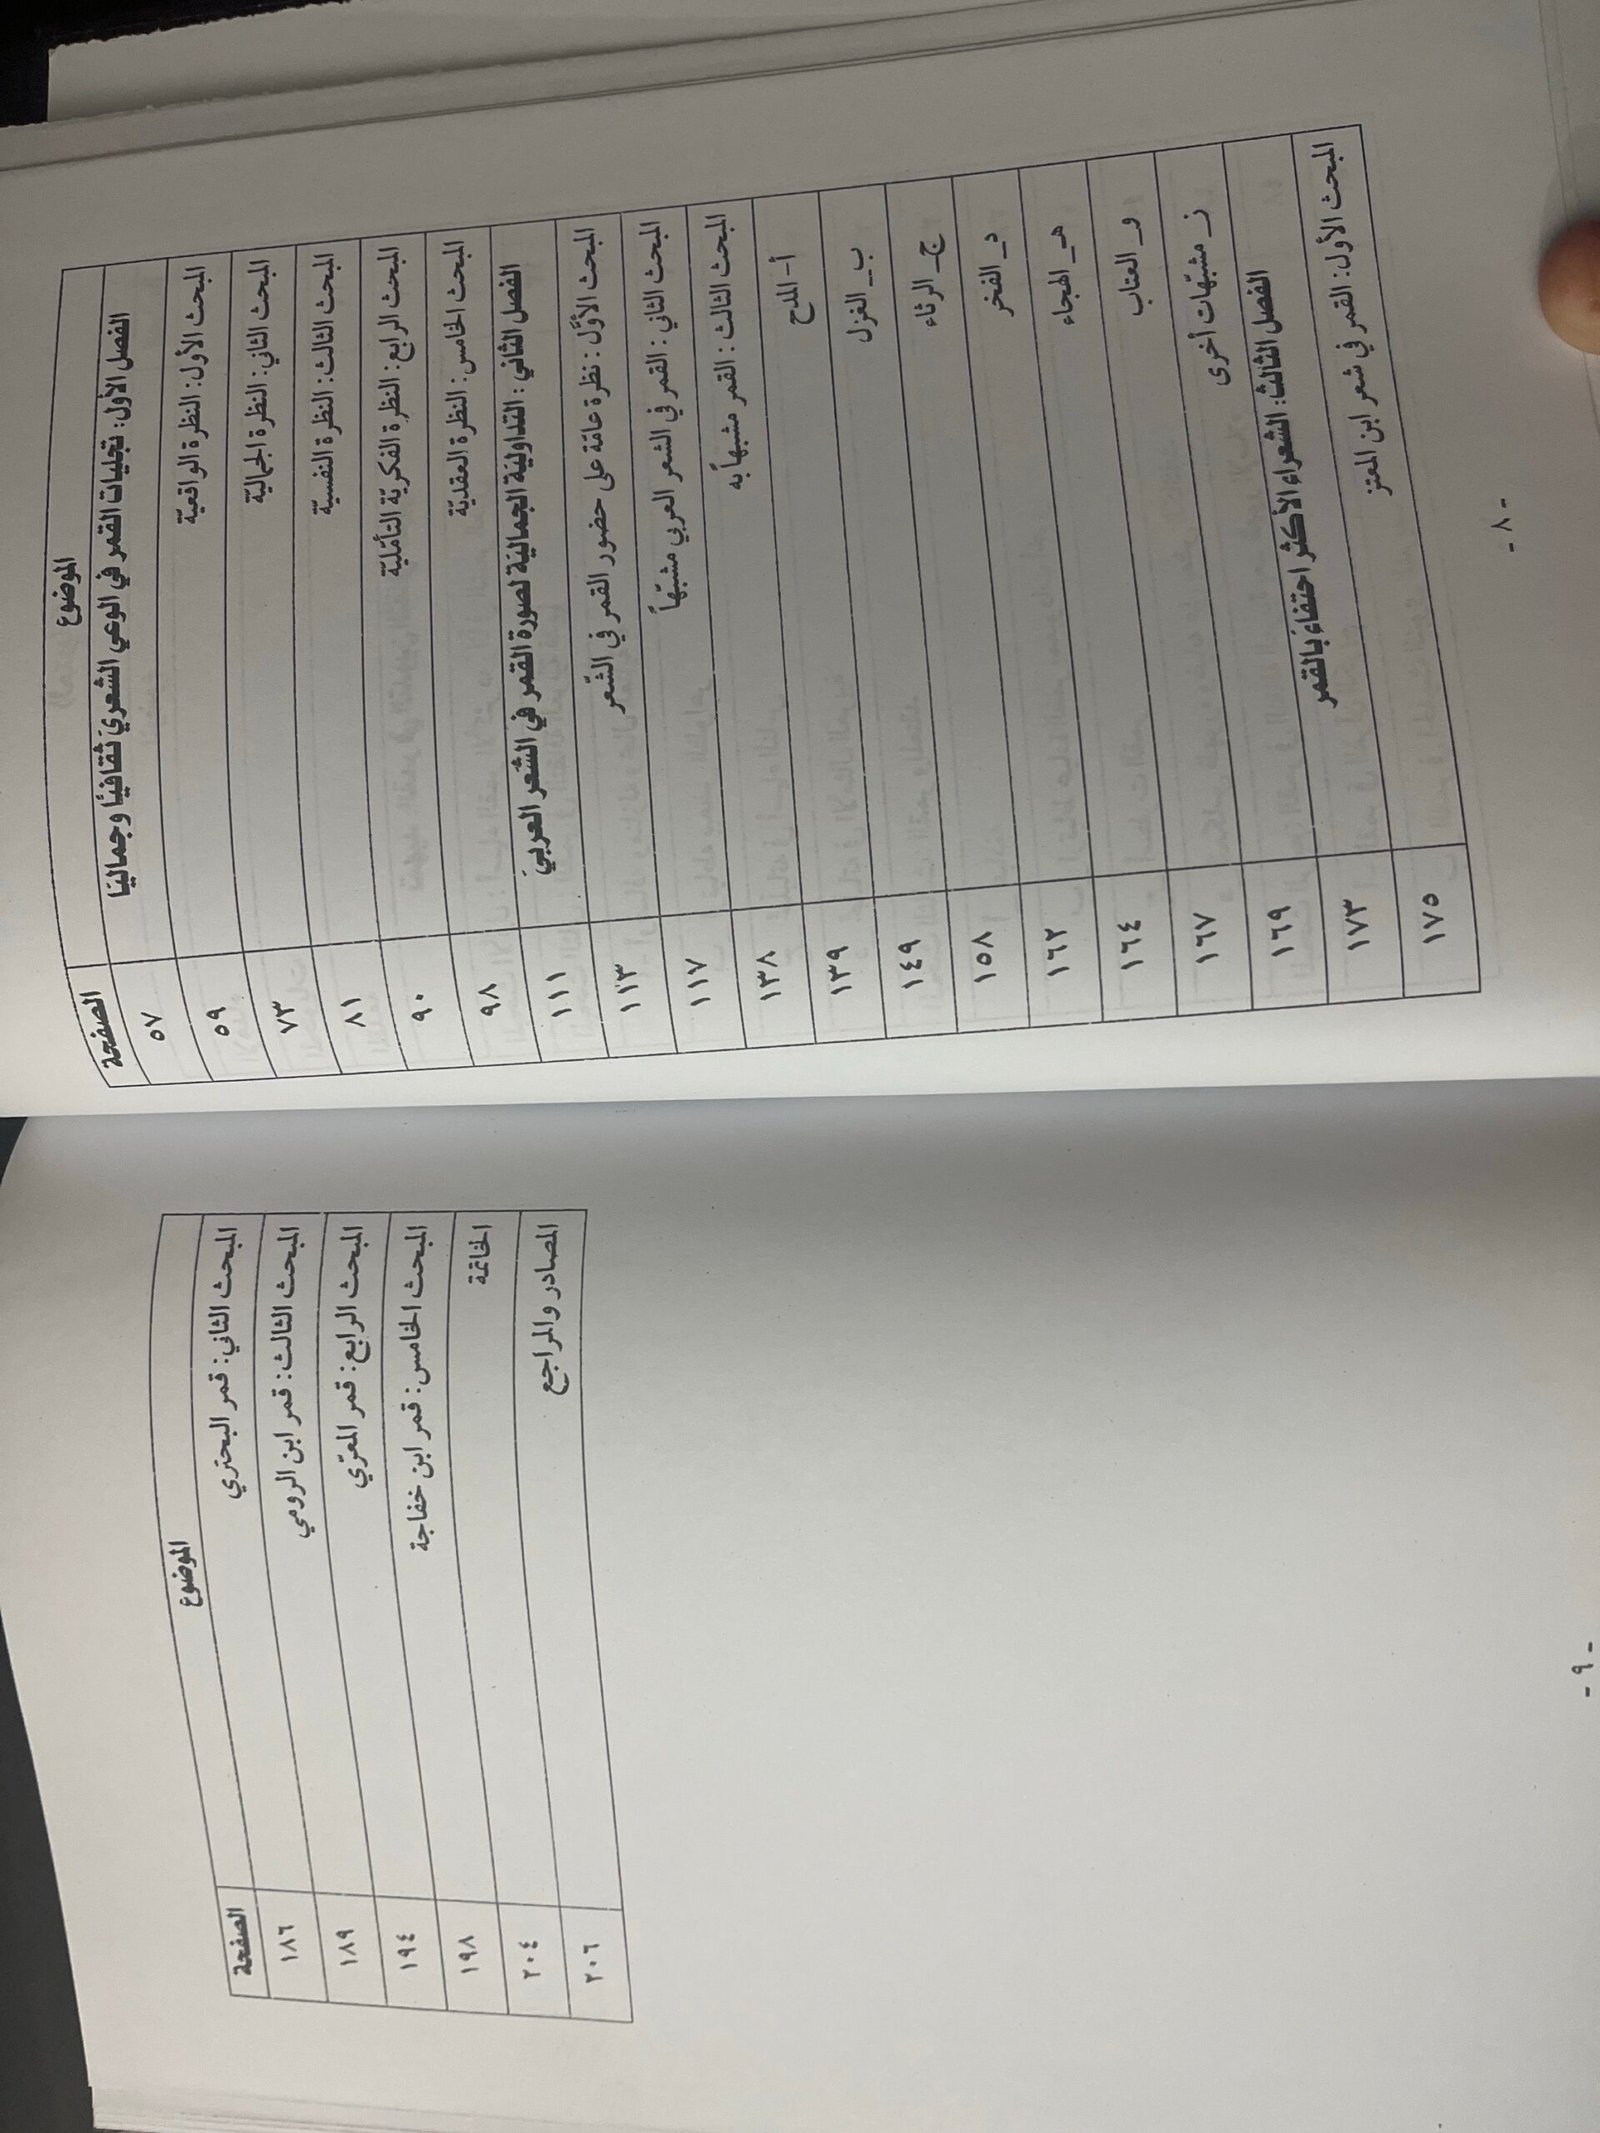 الموضوع الصفحة
الفصل الأول: تجليات القمر في الوعي الشعريّ ثقافيًا وجماليًا ٥٧
المبحث الأول: النظرة الواقعيّة ٥٩
المبحث الثاني: النظرة الجماليّة ٧٣
المبحث الثالث: النظرة النفسيّة ٨١
المبحث الرابع: النظرة الفكريّة التأمّليّة ٩٠
المبحث الخامس: النظرة العقديّة ٩٨
الفصل الثاني: التداوليّة الجماليّة لصورة القمر في الشّعر العربيّ ١١١
المبحث الأوَّل: نظرة عامّة على حضور القمر في الشّعر ١١٣
المبحث الثاني: القمر في الشعر العربي مشبّهاً ١١٧
المبحث الثالث: القمر مشبهاً به ١٣٨
أ- المدح ١٣٩
ب_ الغزل ١٤٩
ج_ الرثاء ١٥٨
د_ الفخر ١٦٢
هـ_ الهجاء ١٦٤
و_ العتاب ١٦٧
ز_ مشبّهات أخرى ١٦٩
الفصل الثالث: الشعراء الأكثر احتفاءً بالقمر ١٧٣
المبحث الأول: القمر في شعر ابن المعتز ١٧٥
- ٨ -
الموضوع الصفحة
المبحث الثاني: قمر البحتري ١٨٦
المبحث الثالث: قمر ابن الرومي ١٨٩
المبحث الرابع: قمر المعرّي ١٩٤
المبحث الخامس: قمر ابن خفاجة ١٩٨
الخاتمة ٢٠٤
المصادر والمراجع ٢٠٦
- ٩ -